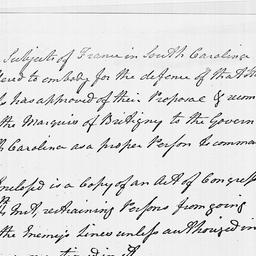 Subjects of France in South Carolina
to embody for the defence of that
has approved of their Proposal &
the Marquis of Bretigny to the Govern
Carolina as a proper Person to comma
Inclosed is a Copy of an Act of Congress
Inst, restraining Persons from going
the Enemy's Lines unless authorized in